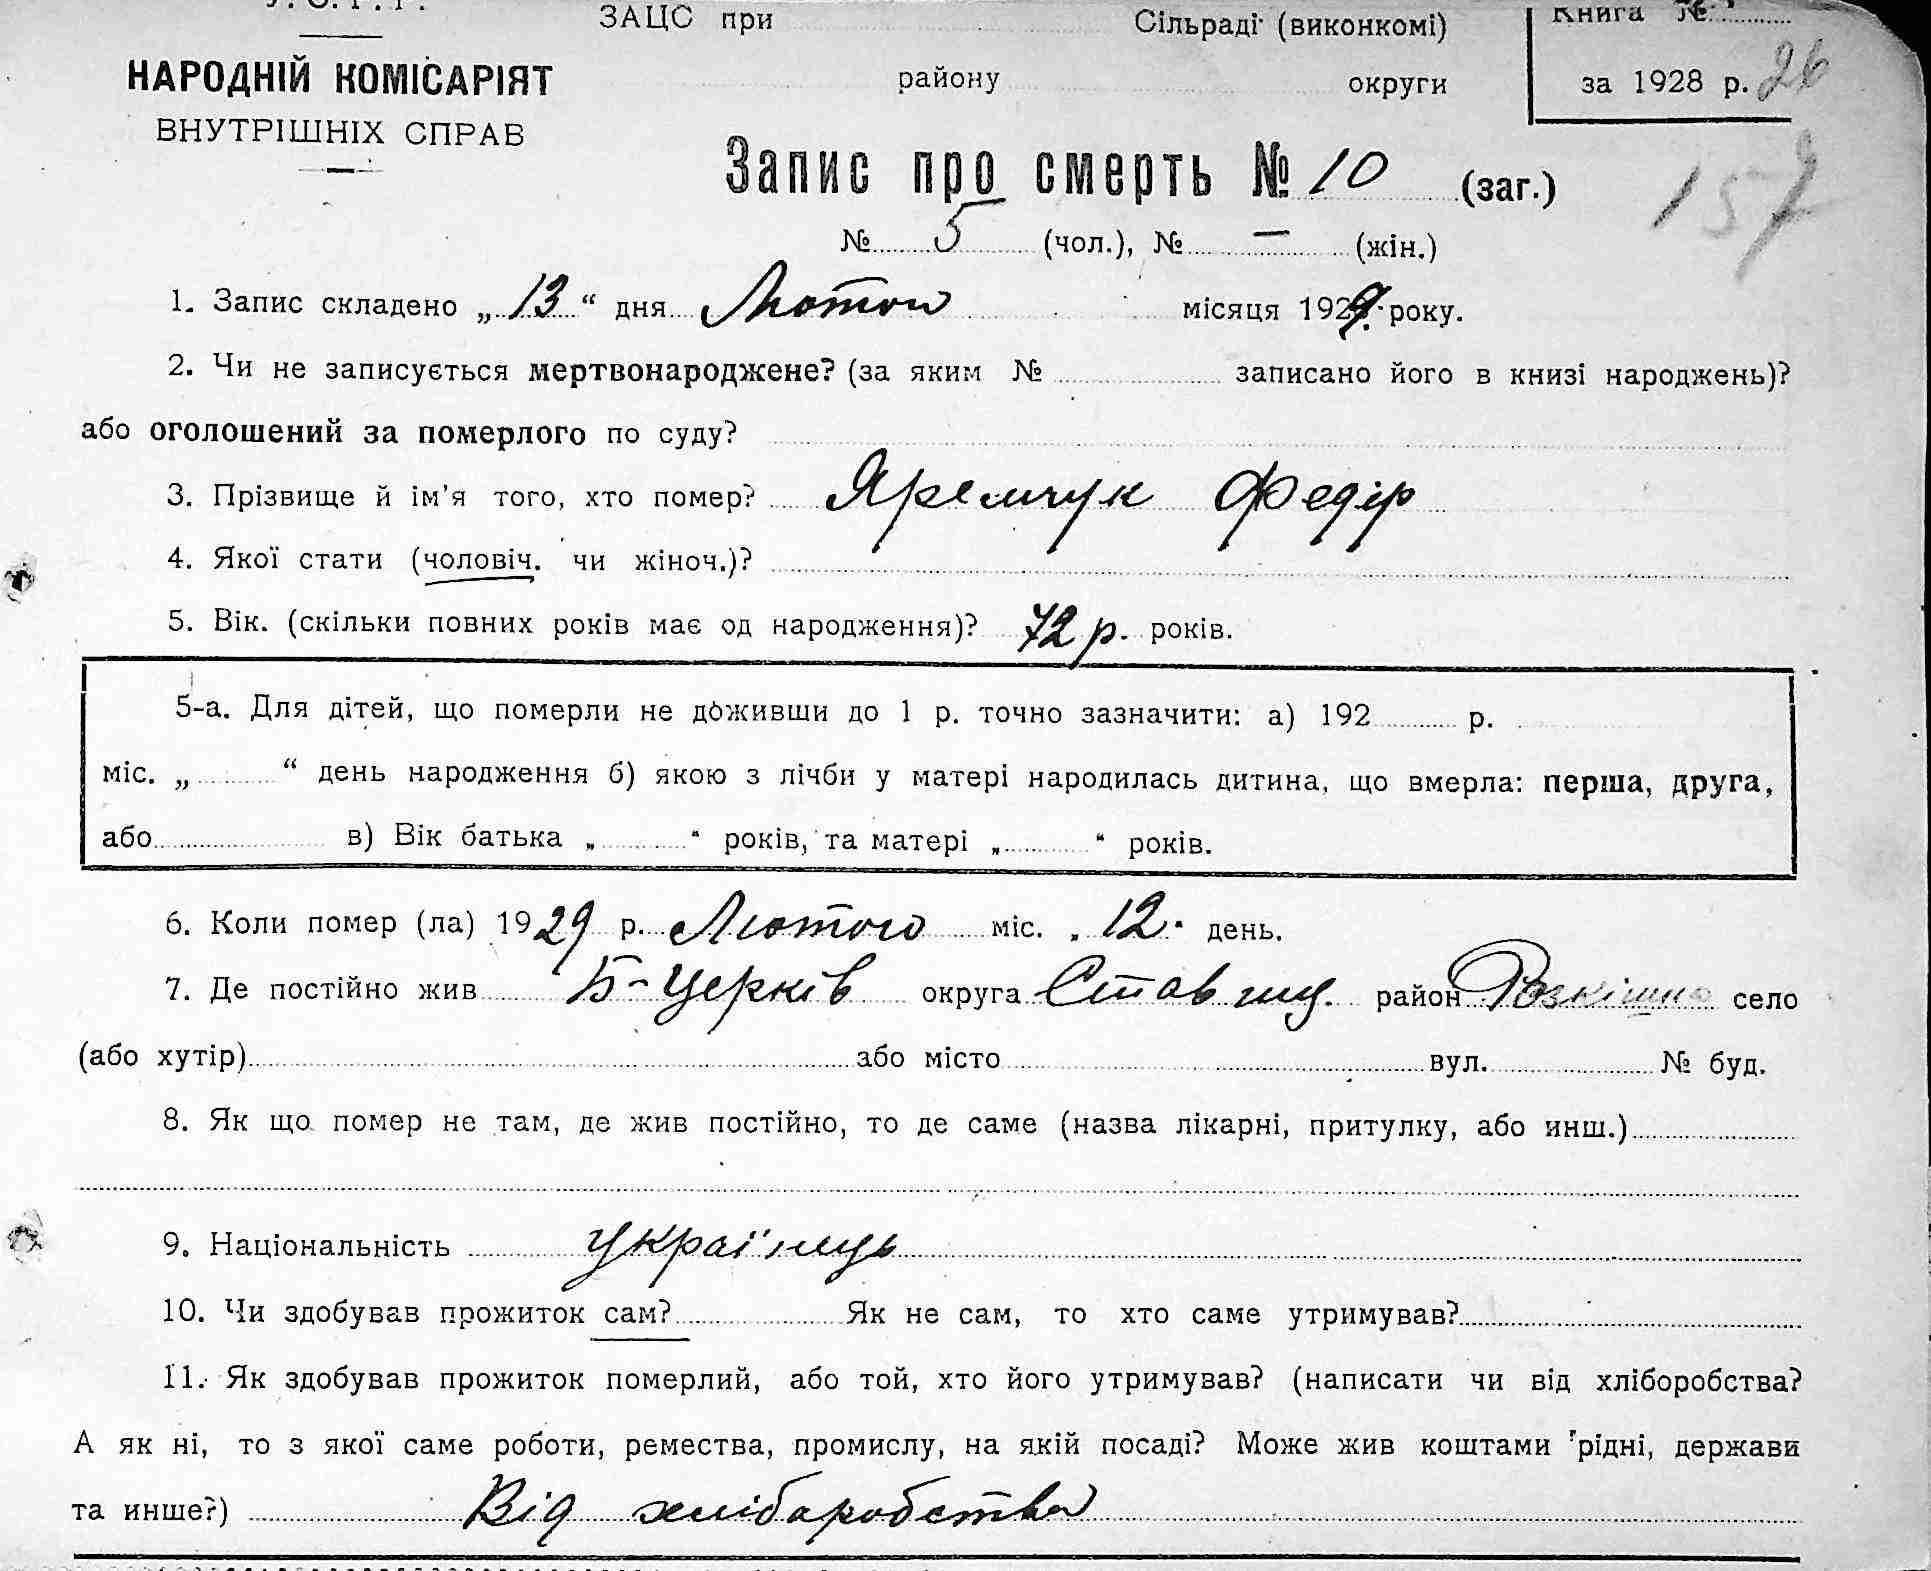 У.С.Р.Р.
ЗАЦС при Сільраді (виконкомі)
Книга №
НАРОДНІЙ КОМІСАРІЯТ
району округи
за 1928 р. 26
ВНУТРІШНІХ СПРАВ
Запис про смерть № 10 (заг.)
157
№ 5 (чол.), № — (жін.)
1. Запис складено „13“ дня Лютого місяця 1929 року.
2. Чи не записується мертвонароджене? (за яким № записано його в книзі народжень)?
або оголошений за померлого по суду?
3. Прізвище й ім’я того, хто помер? Яремчук Федір
4. Якої стати (чоловіч. чи жіноч.)?
5. Вік. (скільки повних років має од народження)? 72 р. років.
5-а. Для дітей, що померли не доживши до 1 р. точно зазначити: а) 192 р.
міс. „ “ день народження б) якою з лічби у матері народилась дитина, що вмерла: перша, друга,
або в) Вік батька „ “ років, та матері „ “ років.
6. Коли помер (ла) 1929 р. Лютого міс. „12“ день.
7. Де постійно жив Б-Церків округа Ставищ. район Розкішна село
(або хутір) або місто вул. № буд.
8. Як що помер не там, де жив постійно, то де саме (назва лікарні, притулку, або инш.)
9. Національність Українець
10. Чи здобував прожиток сам? Як не сам, то хто саме утримував?
11. Як здобував прожиток померлий, або той, хто його утримував? (написати чи від хліборобства?
А як ні, то з якої саме роботи, ремества, промислу, на якій посаді? Може жив коштами рідні, держави
та инше?) Від хліборобства